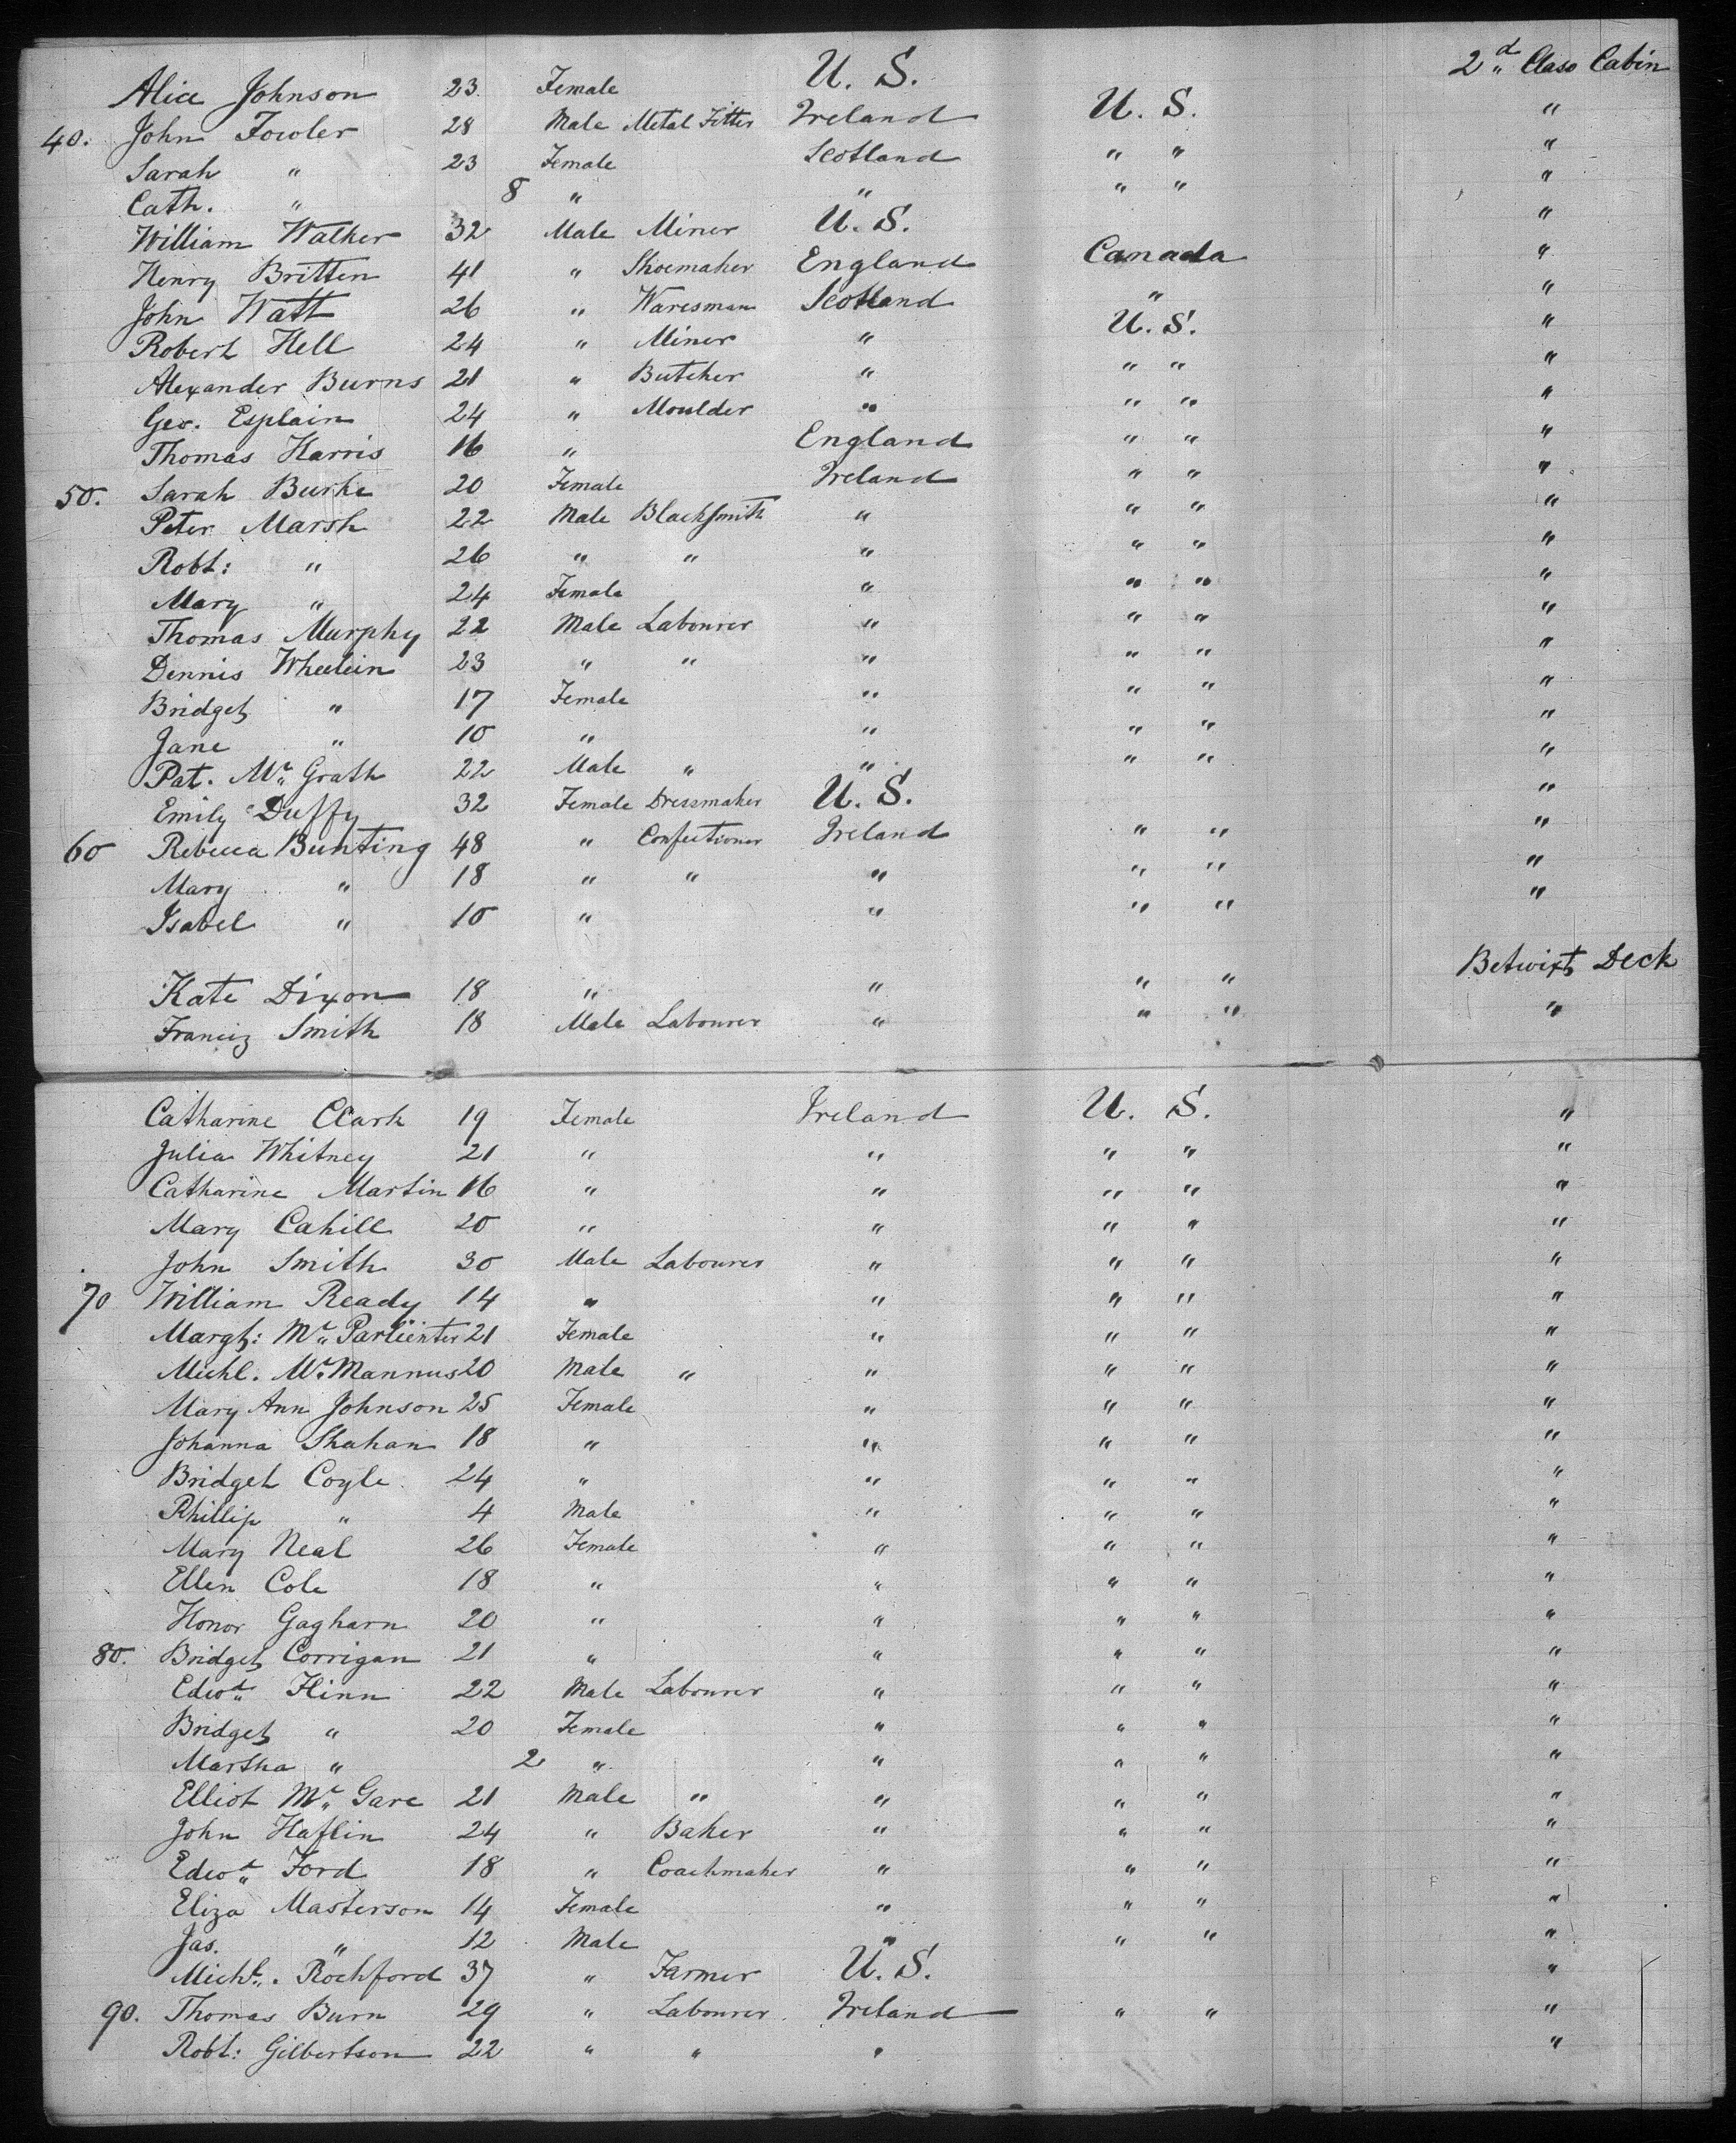 Alice Johnson 23. Female U. S. 2d Class Cabin
40. John Fowler 28 Male Metal Fitter Ireland U. S. "
Sarah " 23 Female Scotland " " "
Cath. " 8 " " " " "
William Walker 32 Male Miner U. S. "
Henry Britten 41 " Shoemaker England Canada "
John Watt 26 " Waresman Scotland " "
Robert Hell 24 " Miner " U. S. "
Alexander Burns 21 " Butcher " " " "
Geo. Esplain 24 " Moulder " " " "
Thomas Harris 16 " England " " "
50. Sarah Burke 20 Female Ireland " " "
Peter Marsh 22 Male Blacksmith " " " "
Robt: " 26 " " " " " "
Mary " 24 Female " " " "
Thomas Murphy 22 Male Labourer " " " "
Dennis Wheelein 23 " " " " " "
Bridget " 17 Female " " " "
Jane " 10 " " " " "
Pat. Mc Grath 22 Male " " " " "
Emily Duffy 32 Female Dressmaker U. S. "
60 Rebecca Bunting 48 " Confectioner Ireland " " "
Mary " 18 " " " " " "
Isabel " 10 " " " " "
Kate Dixon 18 " " " " Betwixt Deck
Francis Smith 18 Male Labourer " " " "
Catharine Clark 19 Female Ireland U. S. "
Julia Whitney 21 " " " " "
Catharine Martin 16 " " " " "
Mary Cahill 20 " " " " "
John Smith 30 Male Labourer " " " "
70 William Ready 14 " " " " "
Margt: Mc 21 Female " " " "
Michl. Mc Mannus 20 Male " " " " "
Mary Ann Johnson 25 Female " " " "
Johanna Shahan 18 " " " " "
Bridget Coyle 24 " " " " "
Phillip " 4 Male " " " "
Mary Neal 26 Female " " " "
Ellen Cole 18 " " " " "
Honor Gagharn 20 " " " " "
80. Bridget Corrigan 21 " " " " "
Edwd Flinn 22 Male Labourer " " " "
Bridget " 20 Female " " " "
Martha " 2 " " " " "
Elliot Mc Gare 21 Male " " " " "
John Haflin 24 " Baker " " " "
Edwd Ford 18 " Coachmaker " " " "
Eliza Masterson 14 Female " " " "
Jas. " 12 Male " " " "
Michl. Rochford 37 " Farmer U. S. "
90. Thomas Burn 29 " Labourer Ireland " " "
Robt: Gilbertson 22 " " " "